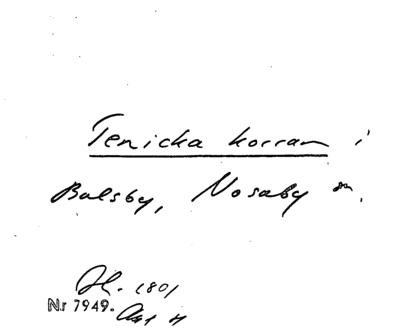 Tenicka korran i
Balsby, Nosaby sn.
Jl. 1801
Nr 7949.